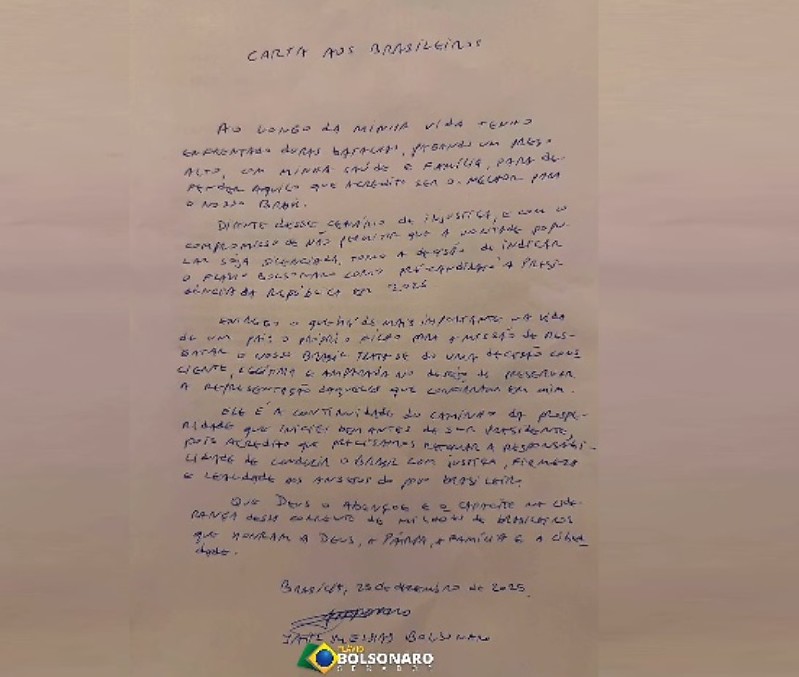 CARTA AOS BRASILEIROS
AO LONGO DA MINHA VIDA TENHO
ENFRENTADO DURAS BATALHAS, PAGANDO UM PREÇO
ALTO, COM MINHA SAÚDE E FAMÍLIA, PARA DE-
FENDER AQUILO QUE ACREDITO SER O MELHOR PARA
O NOSSO BRASIL.
DIANTE DESSE CENÁRIO DE INJUSTIÇA, E COM O
COMPROMISSO DE NÃO PERMITIR QUE A VONTADE POPU-
LAR SEJA SILENCIADA, TOMO A DECISÃO DE INDICAR
O FLÁVIO BOLSONARO COMO PRÉ-CANDIDATO A PRESI-
DÊNCIA DA REPÚBLICA EM 2026
ENTREGO O QUE HÁ DE MAIS IMPORTANTE NA VIDA
DE UM PAI: O PRÓPRIO FILHO PARA A MISSÃO DE RES-
GATAR O NOSSO BRASIL. TRATA-SE DE UMA DECISÃO CONS-
CIENTE, LEGÍTIMA E AMPARADA NO DESEJO DE PRESERVAR
A REPRESENTAÇÃO DAQUELES QUE CONFIARAM EM MIM.
ELE É A CONTINUIDADE DO CAMINHO DA PROSPE-
RIDADE QUE INICIEI BEM ANTES DE SER PRESIDENTE,
POIS ACREDITO QUE PRECISAMOS RETOMAR A RESPONSABI-
LIDADE DE CONDUZIR O BRASIL COM JUSTIÇA, FIRMEZA
E LEALDADE AOS ANSEIOS DO POVO BRASILEIRO.
QUE DEUS O ABENÇOE E O CAPACITE NA LIDE-
RANÇA DESSA CORRENTE DE MILHÕES DE BRASILEIROS
QUE HONRAM A DEUS, A PÁTRIA, A FAMÍLIA E A LIBER-
DADE.
BRASÍLIA, 25 DE DEZEMBRO DE 2025
JAIR MESSIAS BOLSONARO
FLÁVIO
BOLSONARO
SENADOR